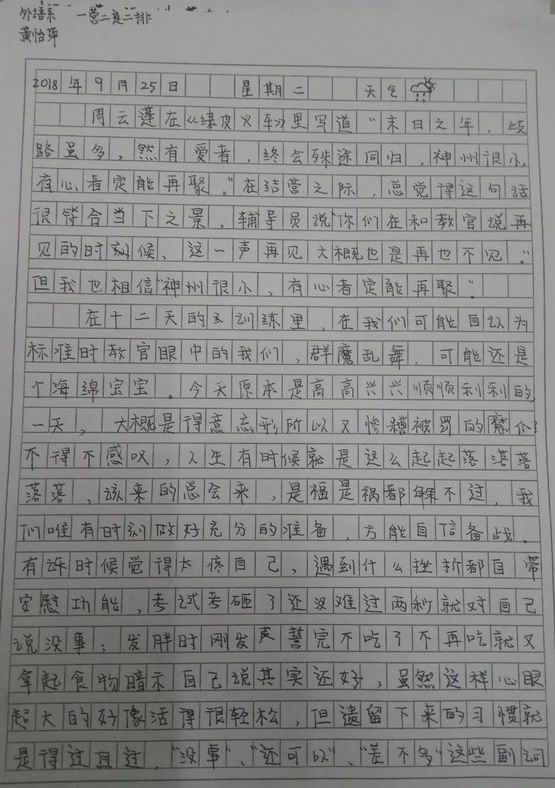 外培系 一营二连二排
黄怡萍
2018年9月25日 星期二 天气
周云蓬在《绿皮火车》里写道"末日之年，歧
路虽多，然有爱者，终会殊途同归，神州很小，
有心者定能再聚。"在结营之际，总觉得这句话
很符合当下之景，辅导员说"你们在和教官说再
见的时刻候，这一声再见大概也是再也不见。"
但我也相信"神州很小，有心者定能再聚"
在十二天的训练里，在我们可能自认为
标准时教官眼中的我们，群魔乱舞，可能还是
个海绵宝宝。今天原本是高高兴兴顺顺利利的
一天，大概是得意忘形所以又惨遭被罚的
不得不感叹，人生有时候就是这么起起落落落
落落，该来的总会来，是福是祸都躲不过，我
们唯有时刻做好充分的准备，方能自信备战。
有许时候觉得太疼自己，遇到什么挫折都自带
安慰功能，考试考砸了还没难过两秒就对自己
说没事；发胖时刚发声誓完不吃了不再吃就又
拿起食物暗示自己说其实还好，虽然这样心眼
超大的好像活得很轻松，但遗留下来的习惯就
是得过且过，"没事"、"还可以"、"差不多"这些副词